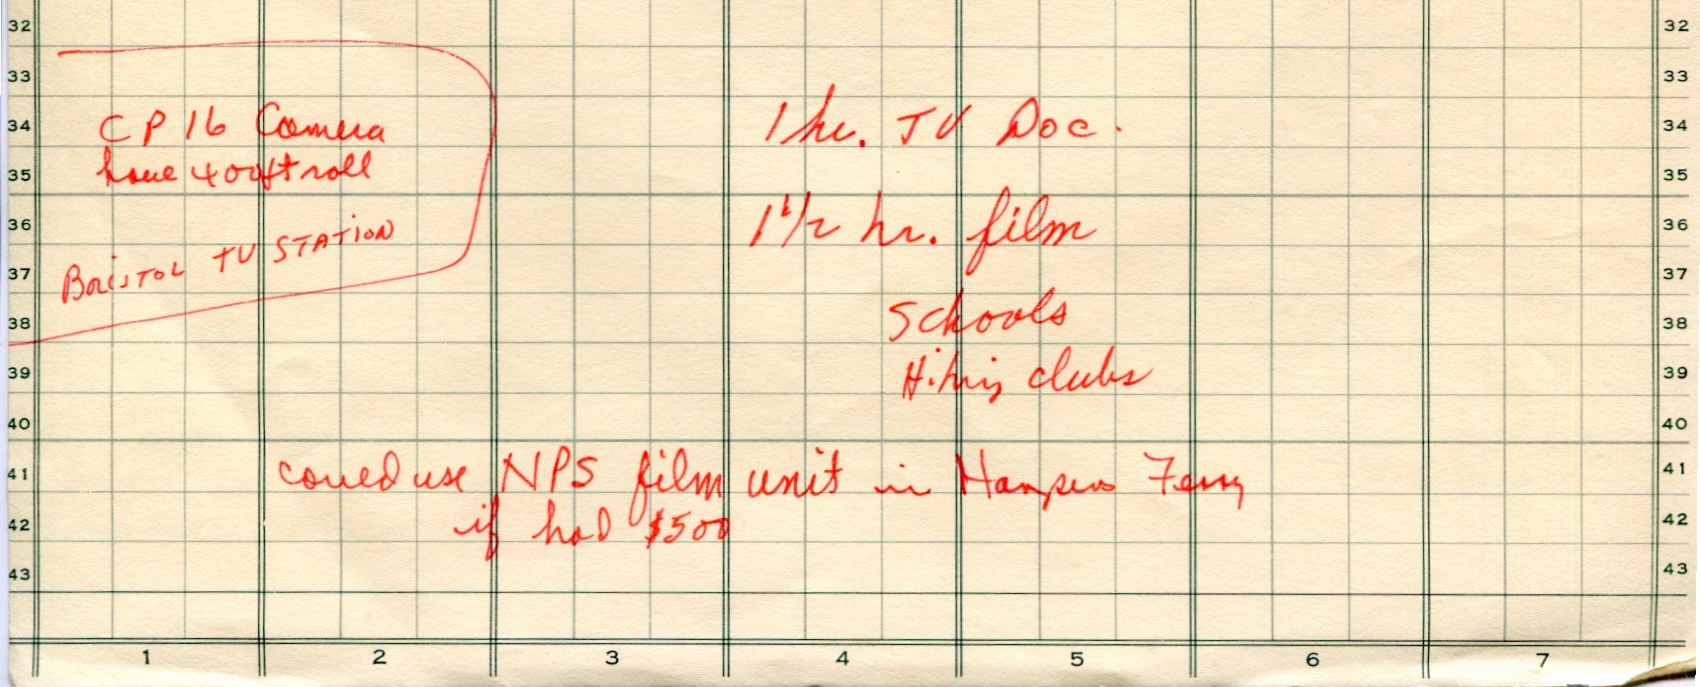 32 32
33 33
34 CP 16 Camera 1 hr. TV Doc. 34
35 have 400ft roll 35
36 1 1/2 hr. film 36
Bristol TV STATION
37 37
38 Schools 38
39 Hiking clubs 39
40 40
41 could use NPS film unit in Harpers Ferry 41
42 if had $500 42
43 43
1 2 3 4 5 6 7